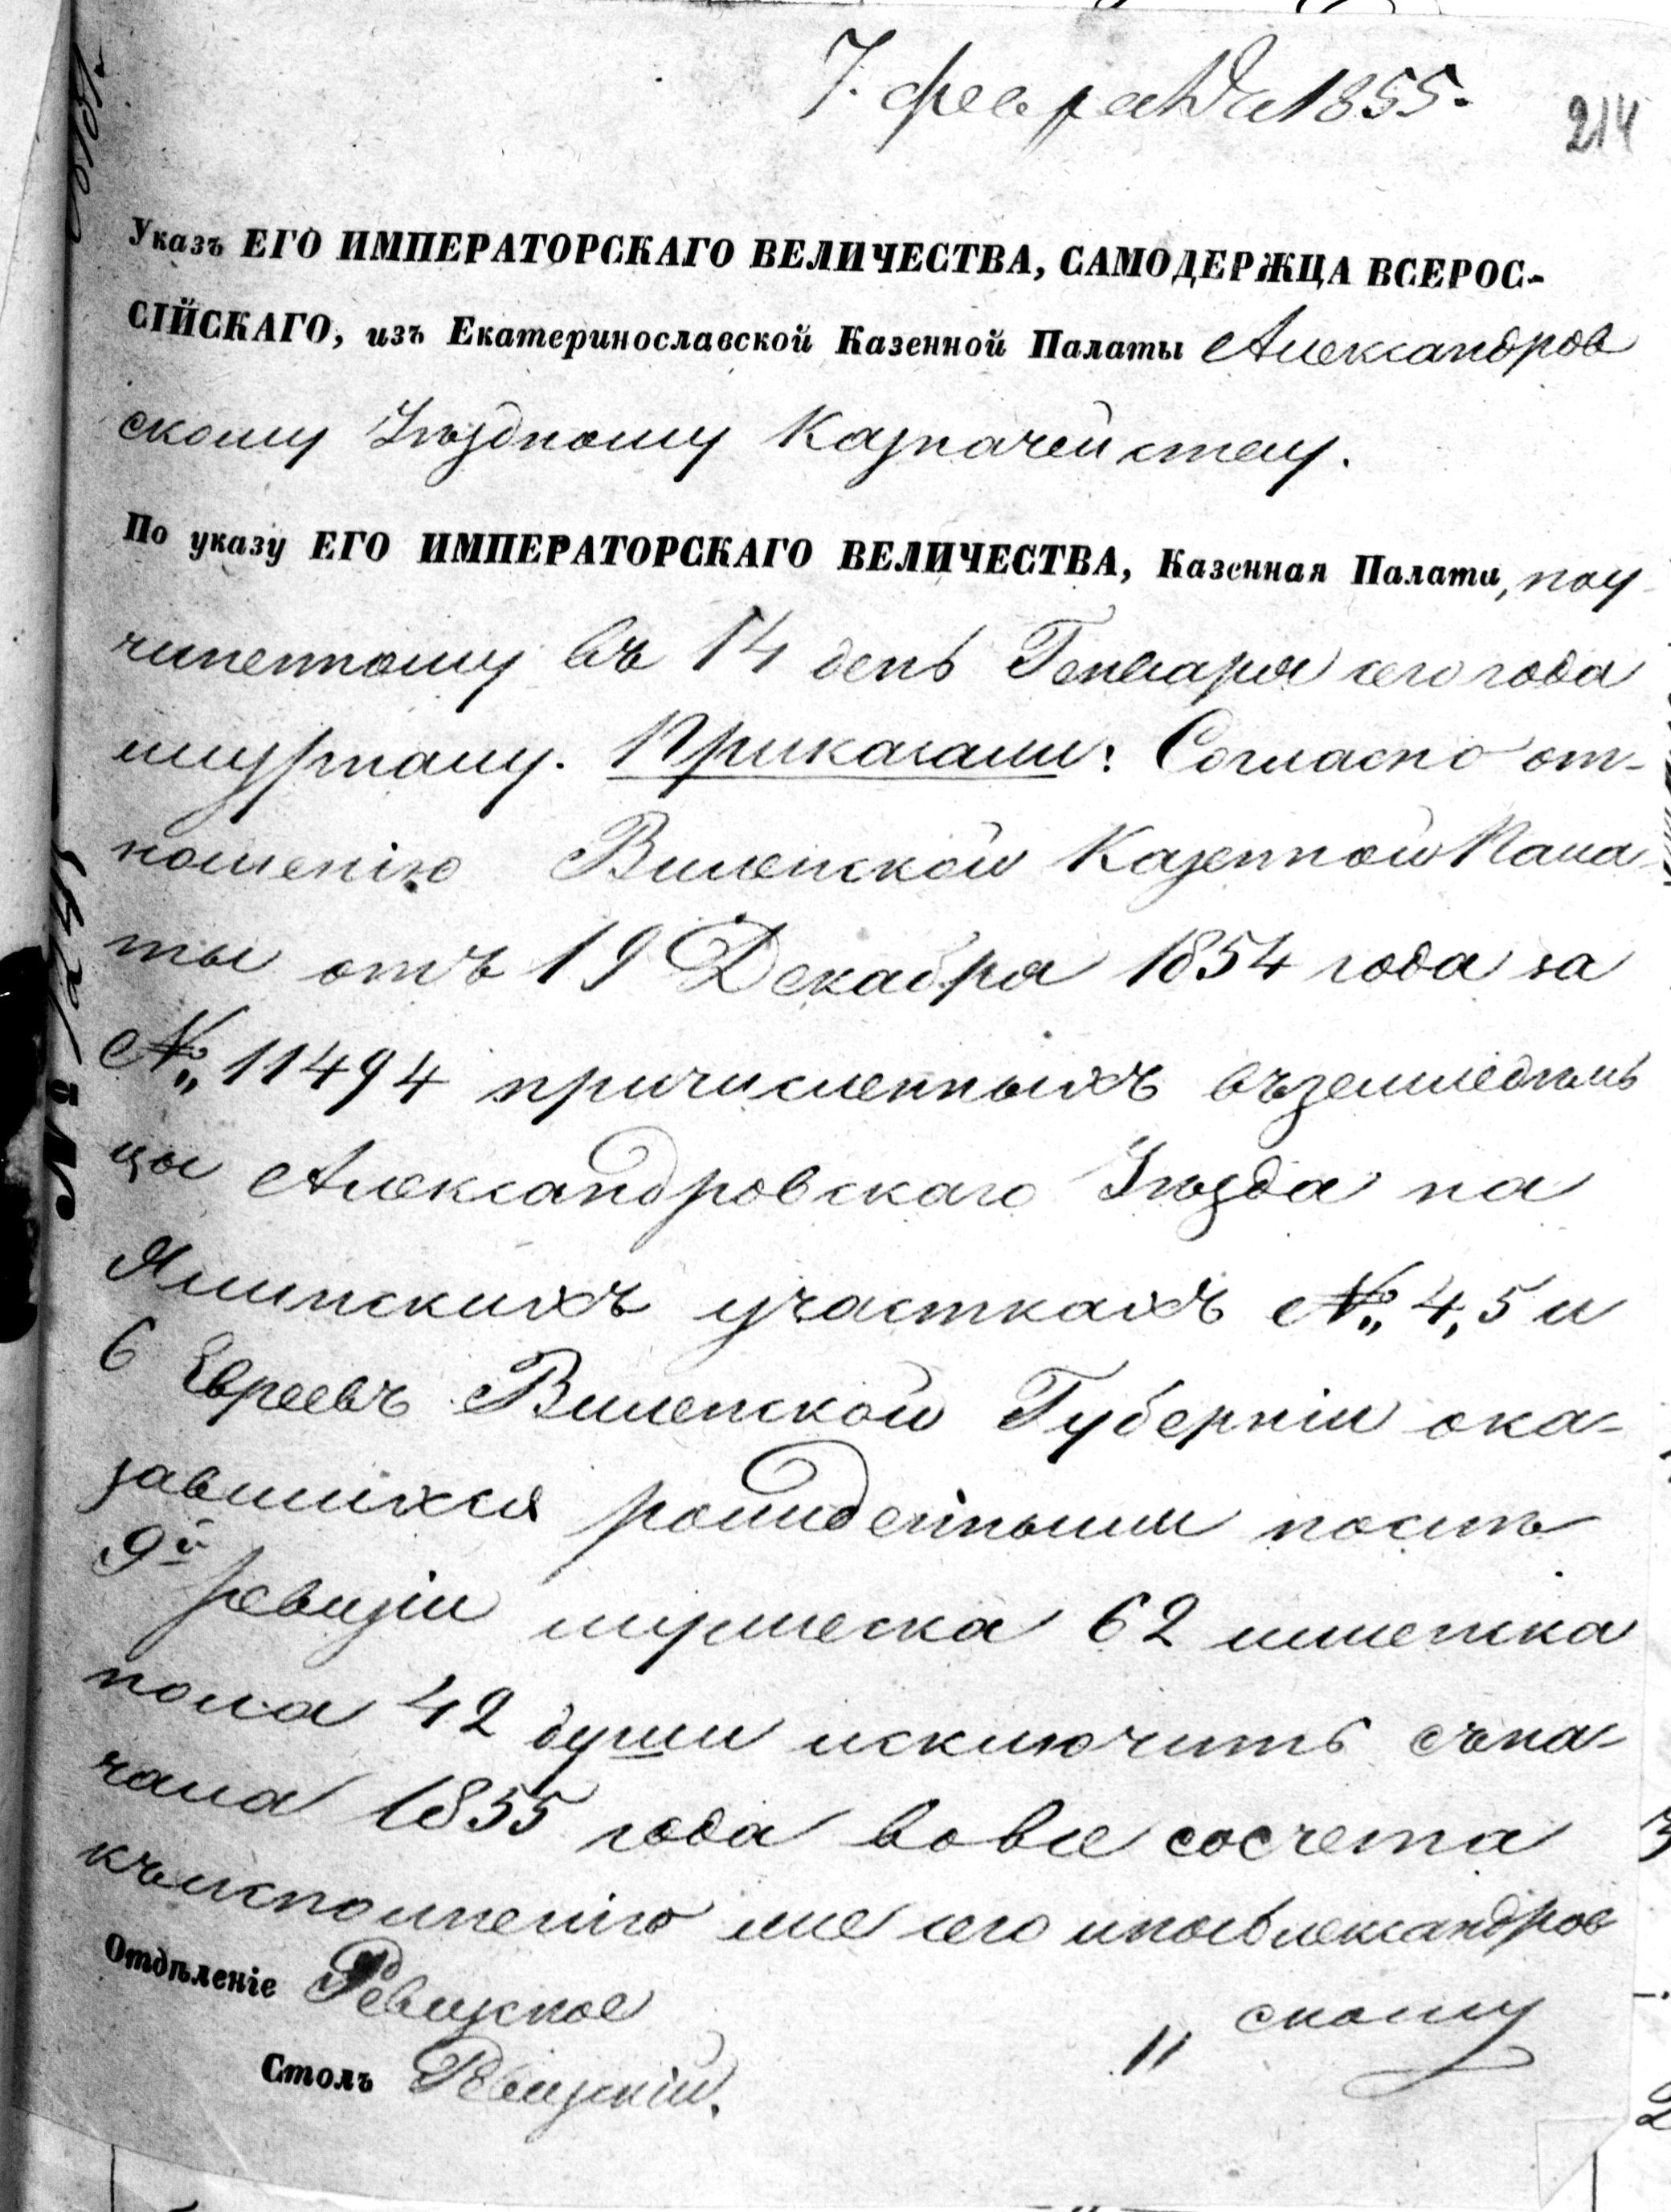 7. февраля 1855.
214
Указъ ЕГО ИМПЕРАТОРСКАГО ВЕЛИЧЕСТВА, САМОДЕРЖЦА ВСЕРОС-
СІЙСКАГО, изъ Екатеринославской Казенной Палаты Александров
скому Уѣздному Казначейству.
По указу ЕГО ИМПЕРАТОРСКАГО ВЕЛИЧЕСТВА, Казенная Палата, по у-
чиненному въ 14 день Генваря сего года
журналу. Приказали: Согласно от-
ношенію Виленской Казенной Пала
ты отъ 19 Декабря 1854 года за
№ 11494 причисленныхъ въ земледѣль
цы Александровскаго Уѣзда на
Ялинскихъ участкахъ № 4, 5 и
6 Евреевъ Виленской Губерніи ока-
завшихся рожденными послѣ
9й ревизіи мужеска 62 и женска
пола 42 души исключить съ на-
чала 1855 года вовсе со счета
къ исполненію же сего Александров
скому
Отдѣленіе Ревизское
Столъ Ревизскій.